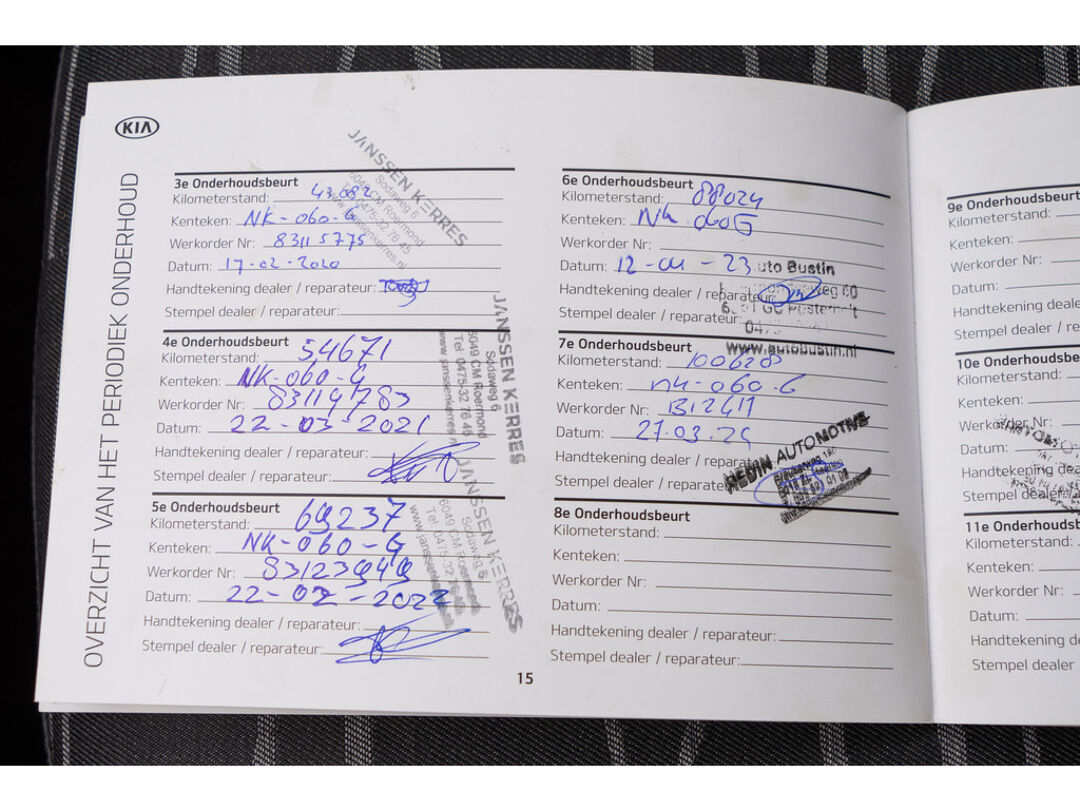 KIA
OVERZICHT VAN HET PERIODIEK ONDERHOUD
3e Onderhoudsbeurt
Kilometerstand: 43.082
Kenteken: NK-060-G
Werkorder Nr: 83115775
Datum: 17-02-2020
Handtekening dealer / reparateur:
Stempel dealer / reparateur:
JANSSEN KERRES
Sodaweg 6
6049 CM Roermond
Tel. 0475-32 76 45
www.janssenkerres.nl
4e Onderhoudsbeurt
Kilometerstand: 54671
Kenteken: NK-060-G
Werkorder Nr: 83119783
Datum: 22-03-2021
Handtekening dealer / reparateur:
Stempel dealer / reparateur:
JANSSEN KERRES
Sodaweg 6
6049 CM Roermond
Tel. 0475-32 76 45
www.janssenkerres.n
5e Onderhoudsbeurt
Kilometerstand: 69237
Kenteken: NK-060-G
Werkorder Nr: 83123949
Datum: 22-02-2022
Handtekening dealer / reparateur:
Stempel dealer / reparateur:
JANSSEN KERRES
Sodaweg 6
6049 CM Roermond
Tel. 0475-32 76
www.janssenke
15
6e Onderhoudsbeurt
Kilometerstand: 88024
Kenteken: NK 060G
Werkorder Nr:
Datum: 12-04-23
Handtekening dealer / reparateur:
Stempel dealer / reparateur:
uto Bustin
weg 60
www.autobustin.nl
7e Onderhoudsbeurt
Kilometerstand: 100628
Kenteken: NK-060-G
Werkorder Nr: 1312411
Datum: 27.03.24
Handtekening dealer / reparateur
Stempel dealer / reparateur
HEDIN AUTOMOTIVE
8e Onderhoudsbeurt
Kilometerstand:
Kenteken:
Werkorder Nr:
Datum:
Handtekening dealer / reparateur:
Stempel dealer / reparateur:
9e Onderhoudsbeurt
Kilometerstand:
Kenteken:
Werkorder Nr:
Datum:
Handtekening dealer
Stempel dealer / re
10e Onderhoudsbe
Kilometerstand:
Kenteken:
Werkorder Nr:
Datum:
Handtekening dea
Stempel dealer
11e Onderhoudsb
Kilometerstand:
Kenteken:
Werkorder Nr:
Datum:
Handtekening d
Stempel dealer